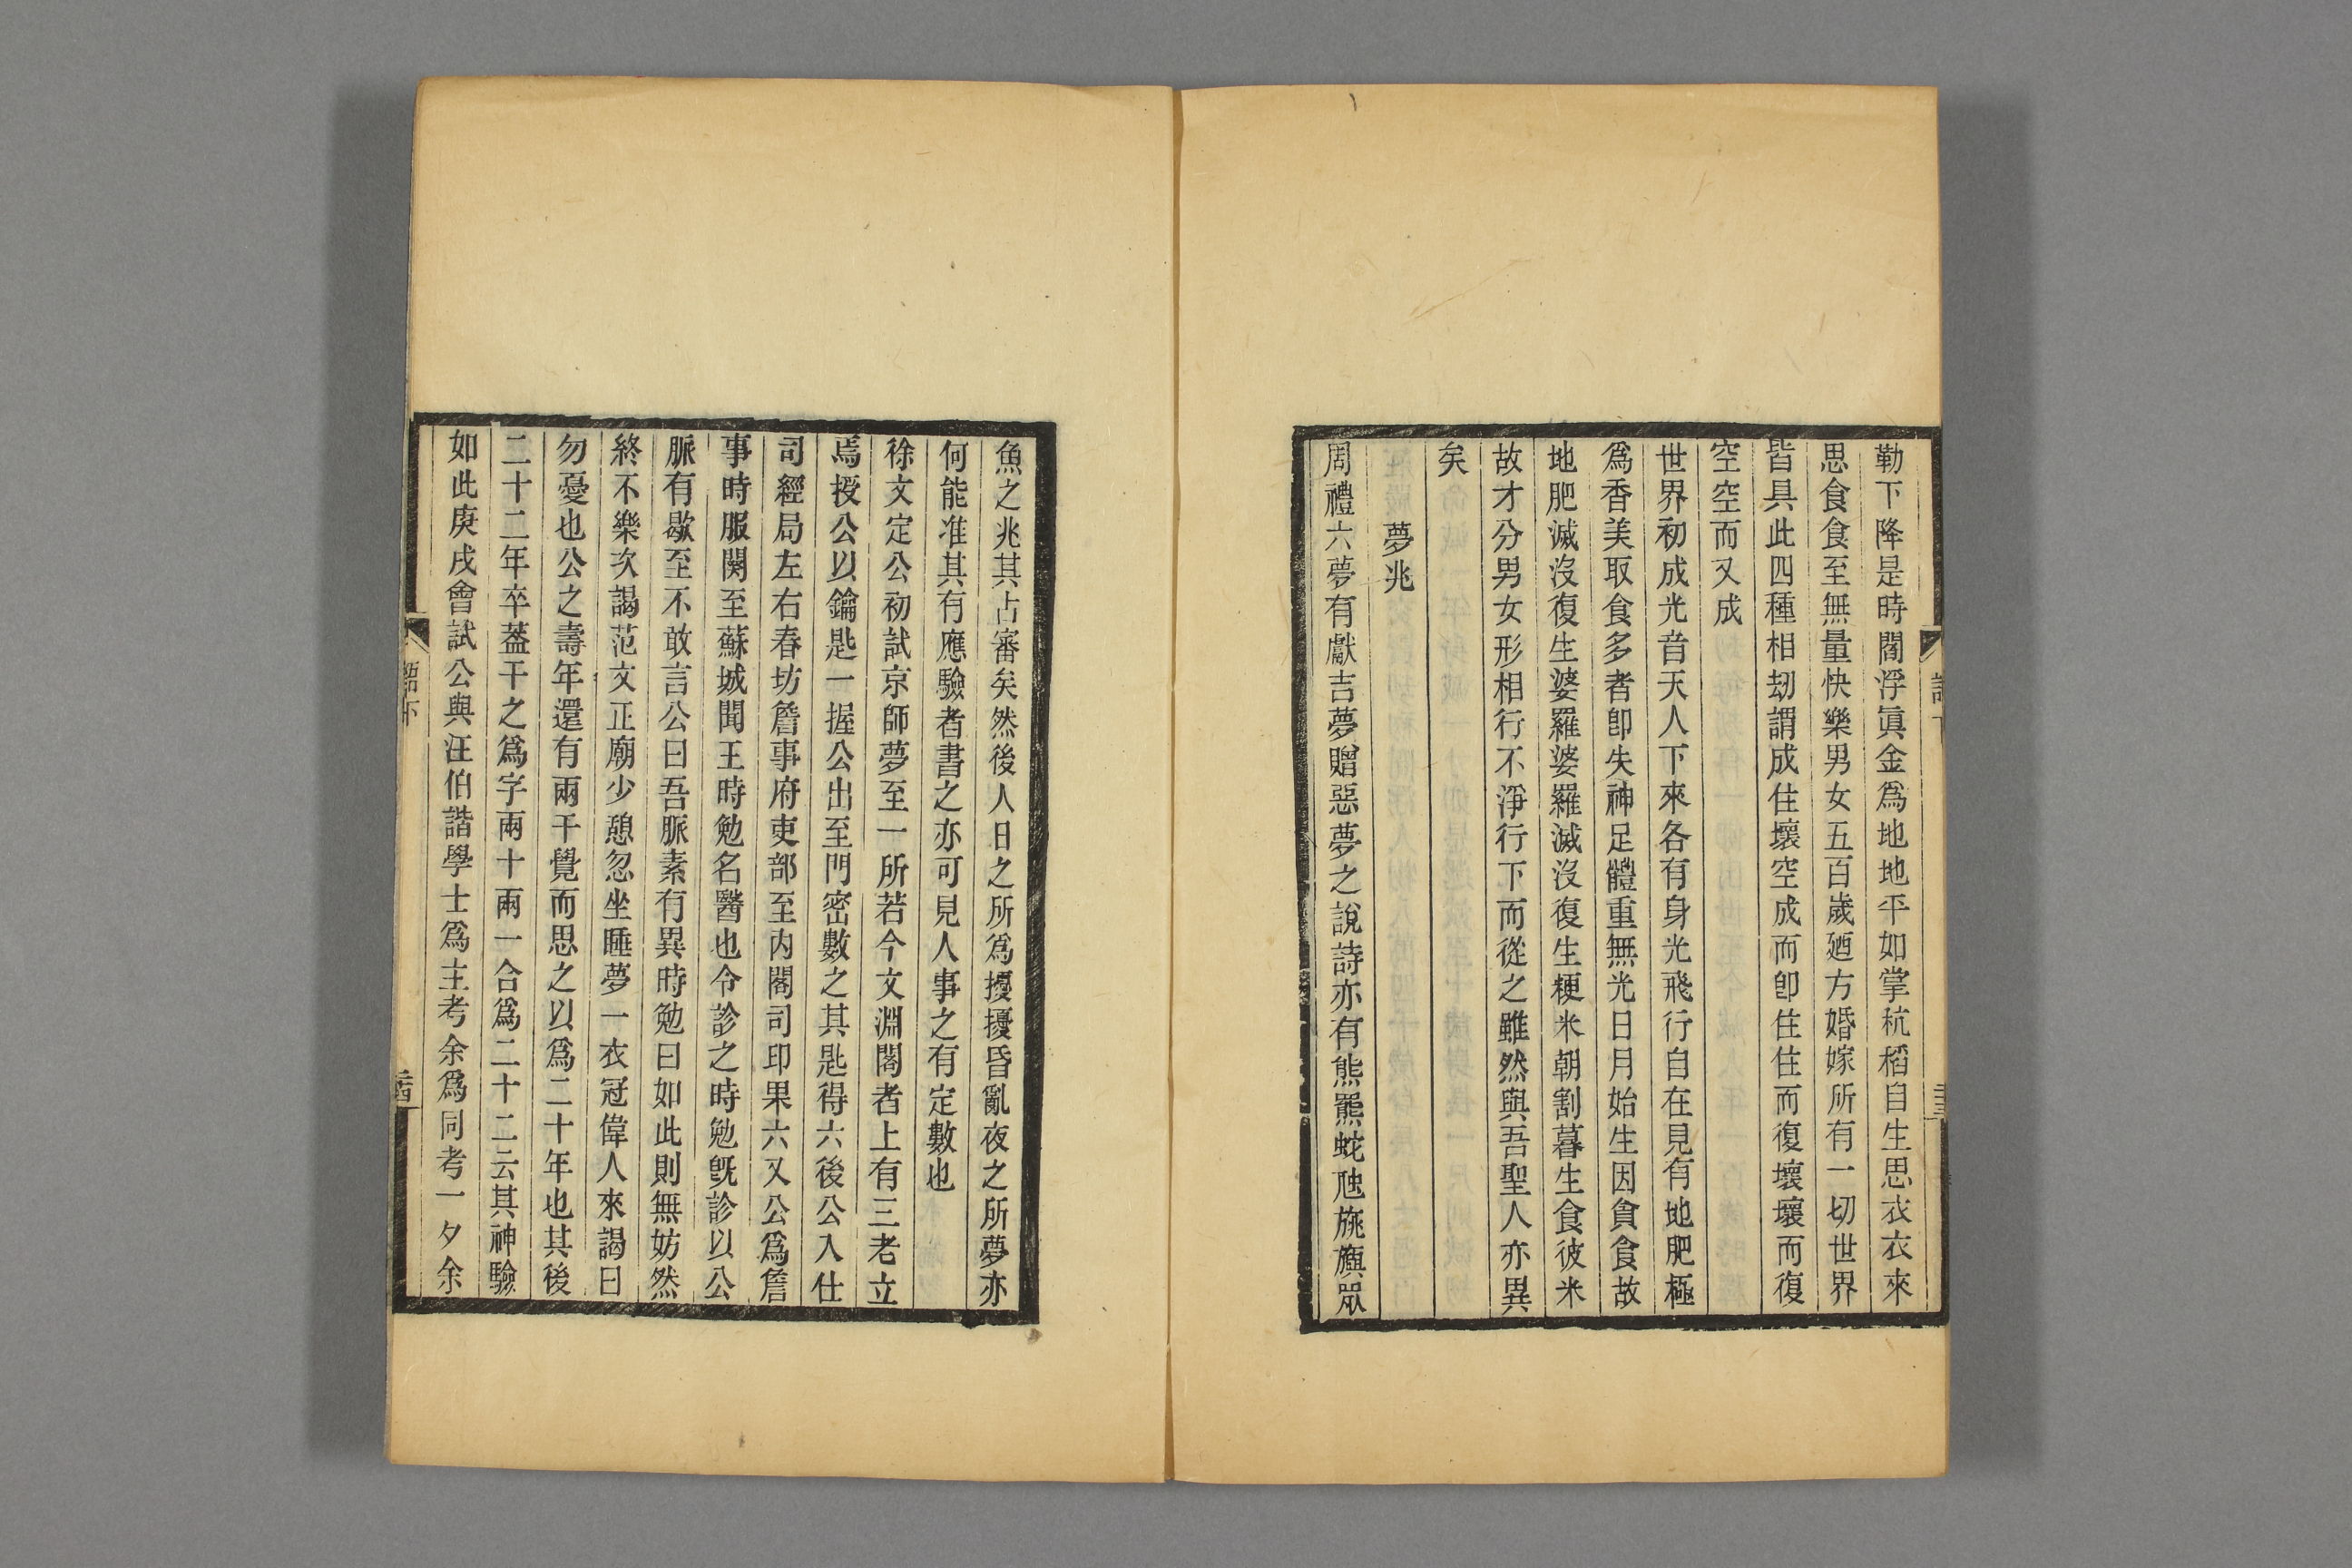 勒下降是時閻浮眞金爲地地平如掌秔稻自生思衣衣來
思食食至無量快樂男女五百歲廼方婚嫁所有一切世界
皆具此四種相劫謂成住壞空成而卽住住而復壞壞而復
空空而又成
世界初成光音天人下來各有身光飛行自在見有地肥極
爲香美取食多者卽失神足體重無光日月始生因貪食故
地肥滅沒復生婆羅婆羅滅沒復生粳米朝割暮生食彼米
故才分男女形相行不淨行下而從之雖然與吾聖人亦異
矣
夢兆
周禮六夢有獻吉夢贈惡夢之說詩亦有熊羆蛇虺旐旟眾
魚之兆其占審矣然後人日之所爲擾擾昏亂夜之所夢亦
何能准其有應驗者書之亦可見人事之有定數也
徐文定公初試京師夢至一所若今文淵閣者上有三老立
焉授公以鑰匙一握公出至門密數之其匙得六後公入仕
司經局左右春坊詹事府吏部至內閣司印果六又公爲詹
事時服闋至蘇城聞王時勉名醫也令診之時勉旣診以公
脈有歇至不敢言公曰吾脈素有異時勉曰如此則無妨然
終不樂次謁范文正廟少憩忽坐睡夢一衣冠偉人來謁曰
勿憂也公之壽年還有兩干覺而思之以爲二十年也其後
二十二年卒葢干之爲字兩十兩一合爲二十二云其神驗
如此庚戌會試公與汪伯諧學士爲主考余爲同考一夕余
語下